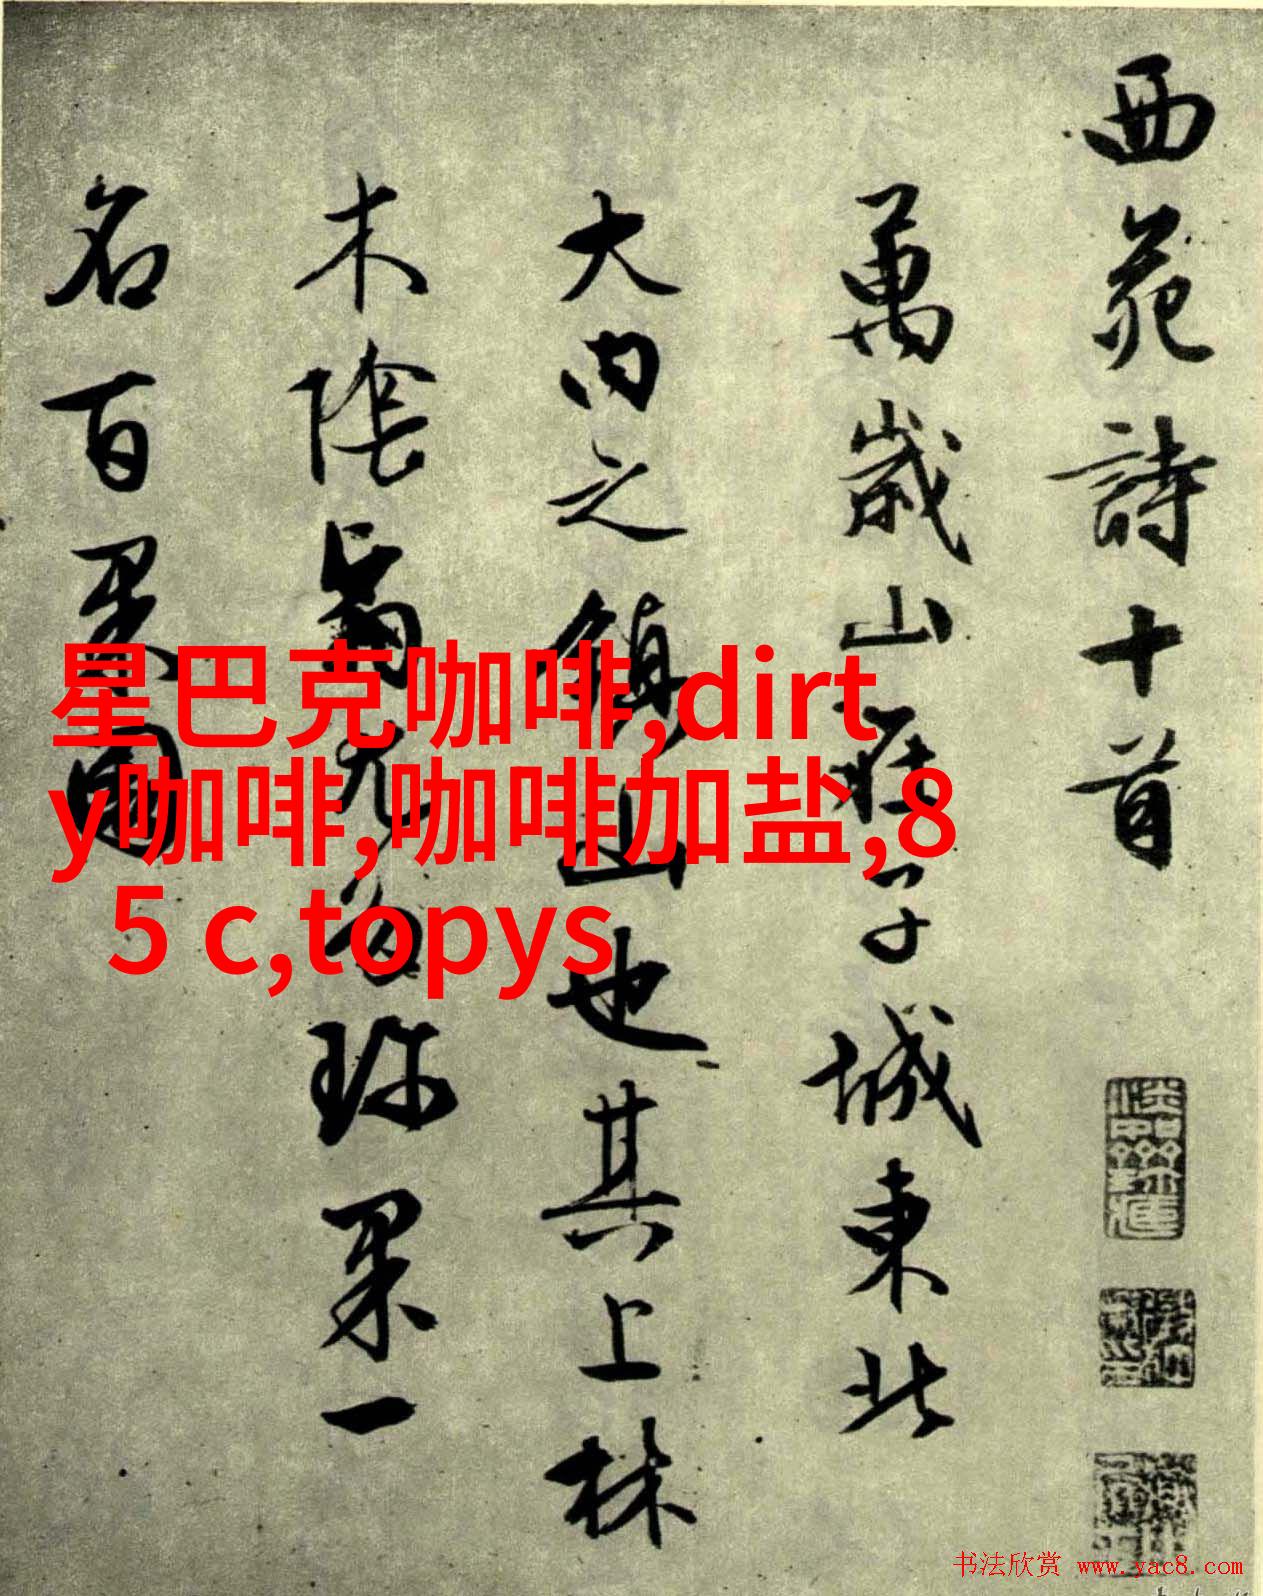 西苑詩十首
萬歲山在子城東北
大内之鎮山也其上林
木陰翳尤多珍果一
名百果園
星巴克咖啡,dirt
y咖啡,咖啡加盐,8
5 c,topys
书法欣赏 www.yac8.com